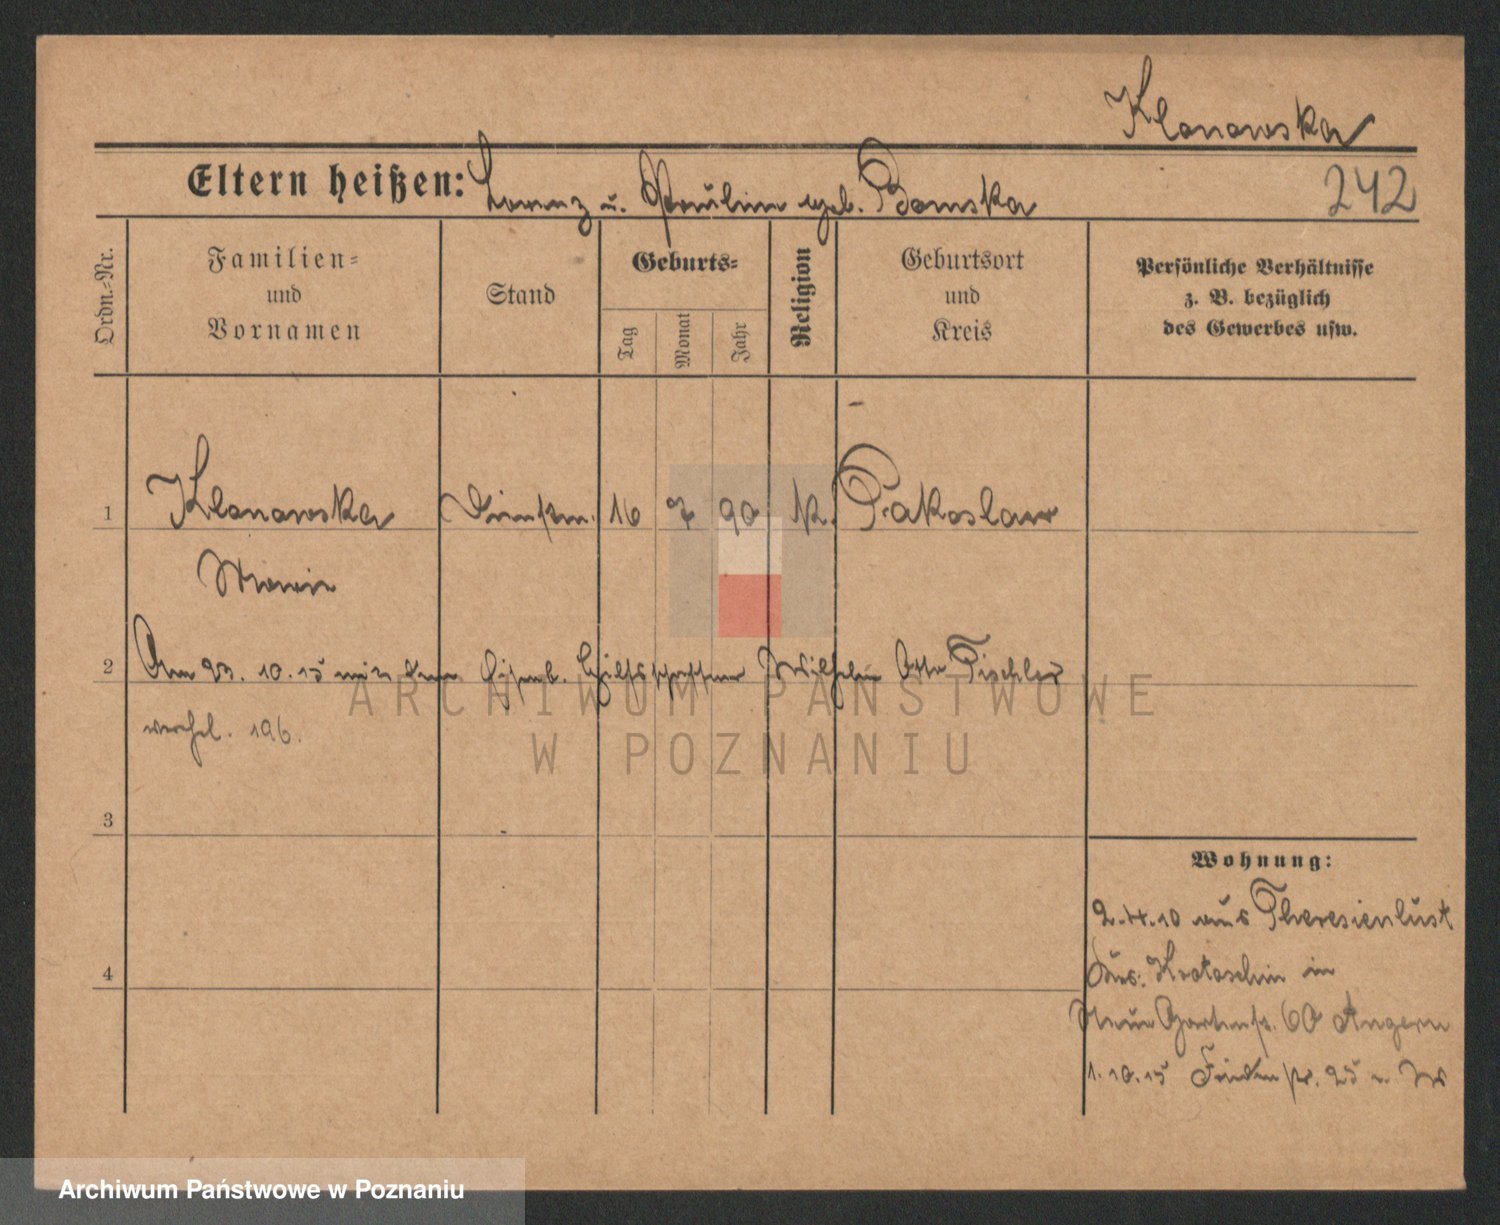 Klonowska
Eltern heißen: Lorenz u. Paulina geb. Domska
242
Ordn.-Nr.
Familien-
und
Vornamen
Stand
Geburts-
Tag
Monat
Jahr
Religion
Geburtsort
und
Kreis
Persönliche Verhältnisse
z. B. bezüglich
des Gewerbes usw.
1 Klonowska 16 7 90 k. Pakoslaw
Maria
2 Am 23. 10. 15 mit dem Eisenb. Hilfsschaffner Wilhelm Otto Tischler
verehel. 196.
3
4
Wohnung:
2.4.10 aus Theresienlust
Krs. Krotoschin in
Neue Gartenstr. 60 Angern
1.10.15 Friedenstr. 25
ARCHIWUM PAŃSTWOWE
W POZNANIU
Archiwum Państwowe w Poznaniu